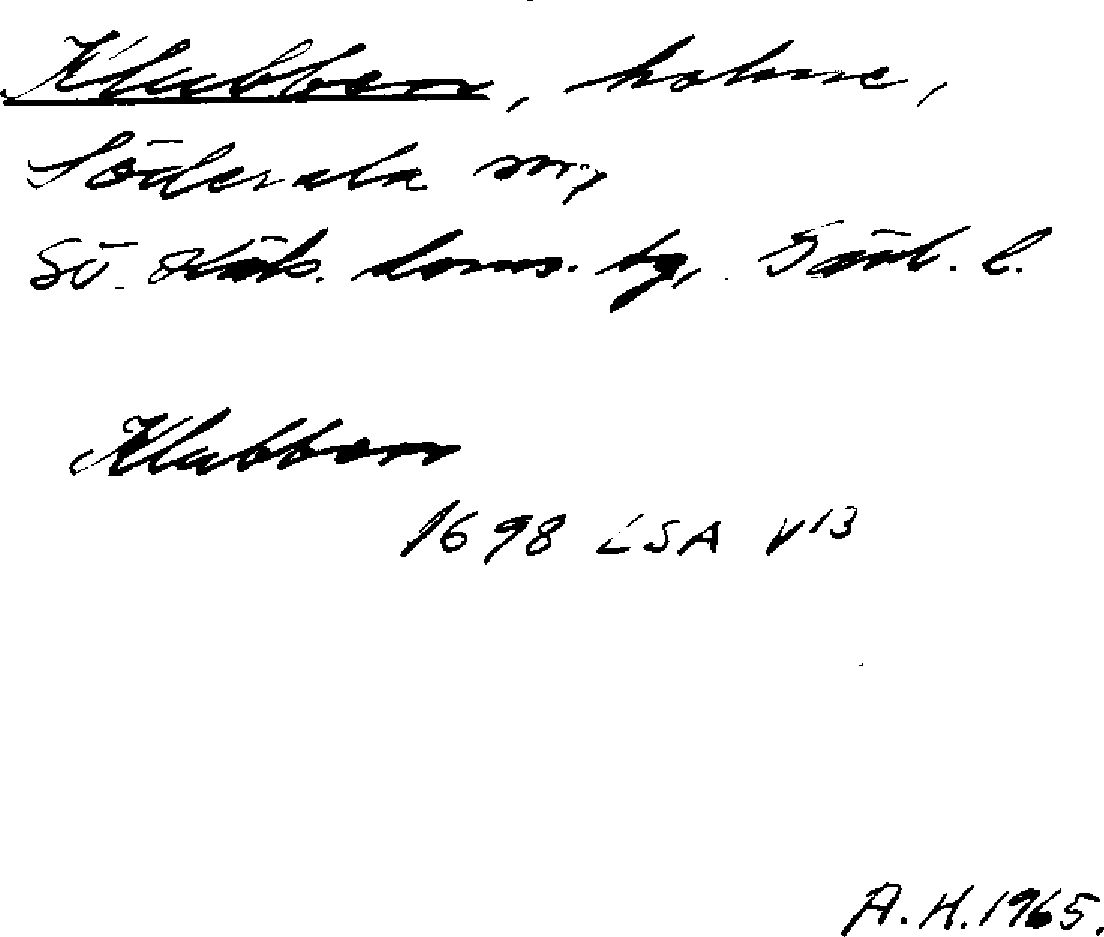 Klubben, holme,
Söderala sn,
SÖ. Häls. doms. tg, Gävl. l.
Klabben
1698 LSA V13
A. H. 1965.